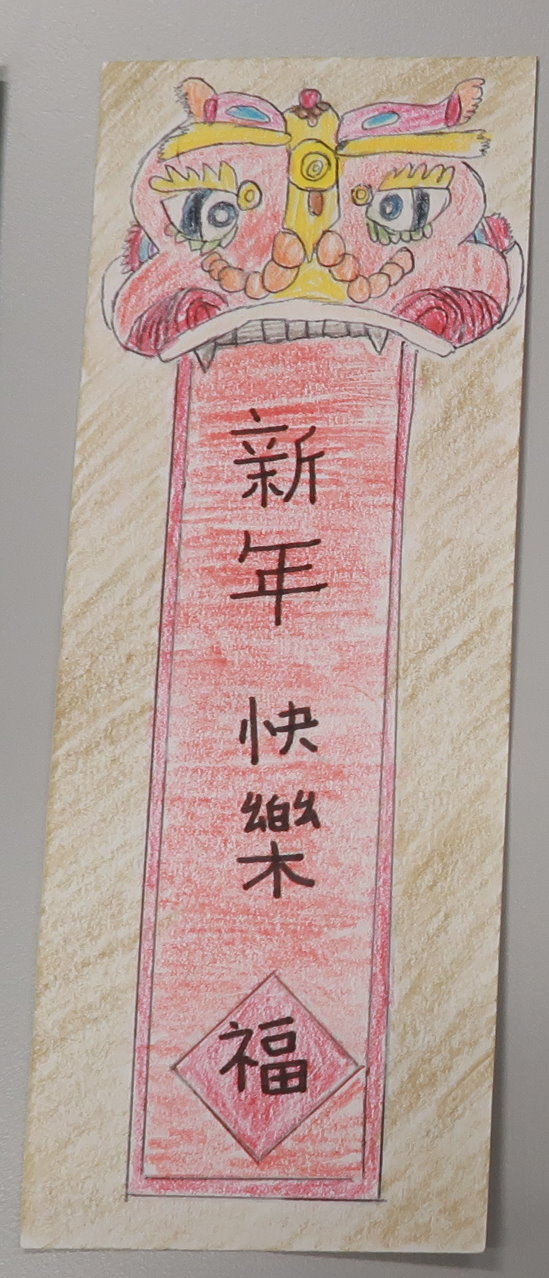 新年快樂
福